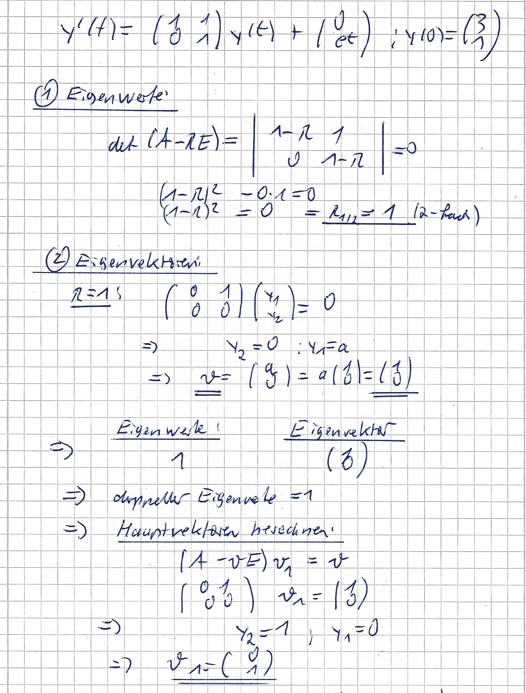 y'(t) = (1 1 / 0 1) y(t) + (0 / et) ; y(0) = (3 / 1)
① Eigenwerte:
det (A-λE) = | 1-λ 1 / 0 1-λ | = 0
(1-λ)² - 0·1 = 0
(1-λ)² = 0 = λ1/2 = 1 (2-fach)
② Eigenvektoren:
λ=1: (0 1 / 0 0) (y1 / y2) = 0
=> y2 = 0 ; y1 = a
=> v = (a / 0) = a (1 / 0) = (1 / 0)
Eigenwerte: Eigenvektor
=> 1 (1 / 0)
=> doppelter Eigenwerte = 1
=> Hauptvektoren berechnen:
(A - vE) v1 = v
(0 1 / 0 0) v1 = (1 / 0)
=> y2 = 1 ; y1 = 0
=> v1 = (0 / 1)